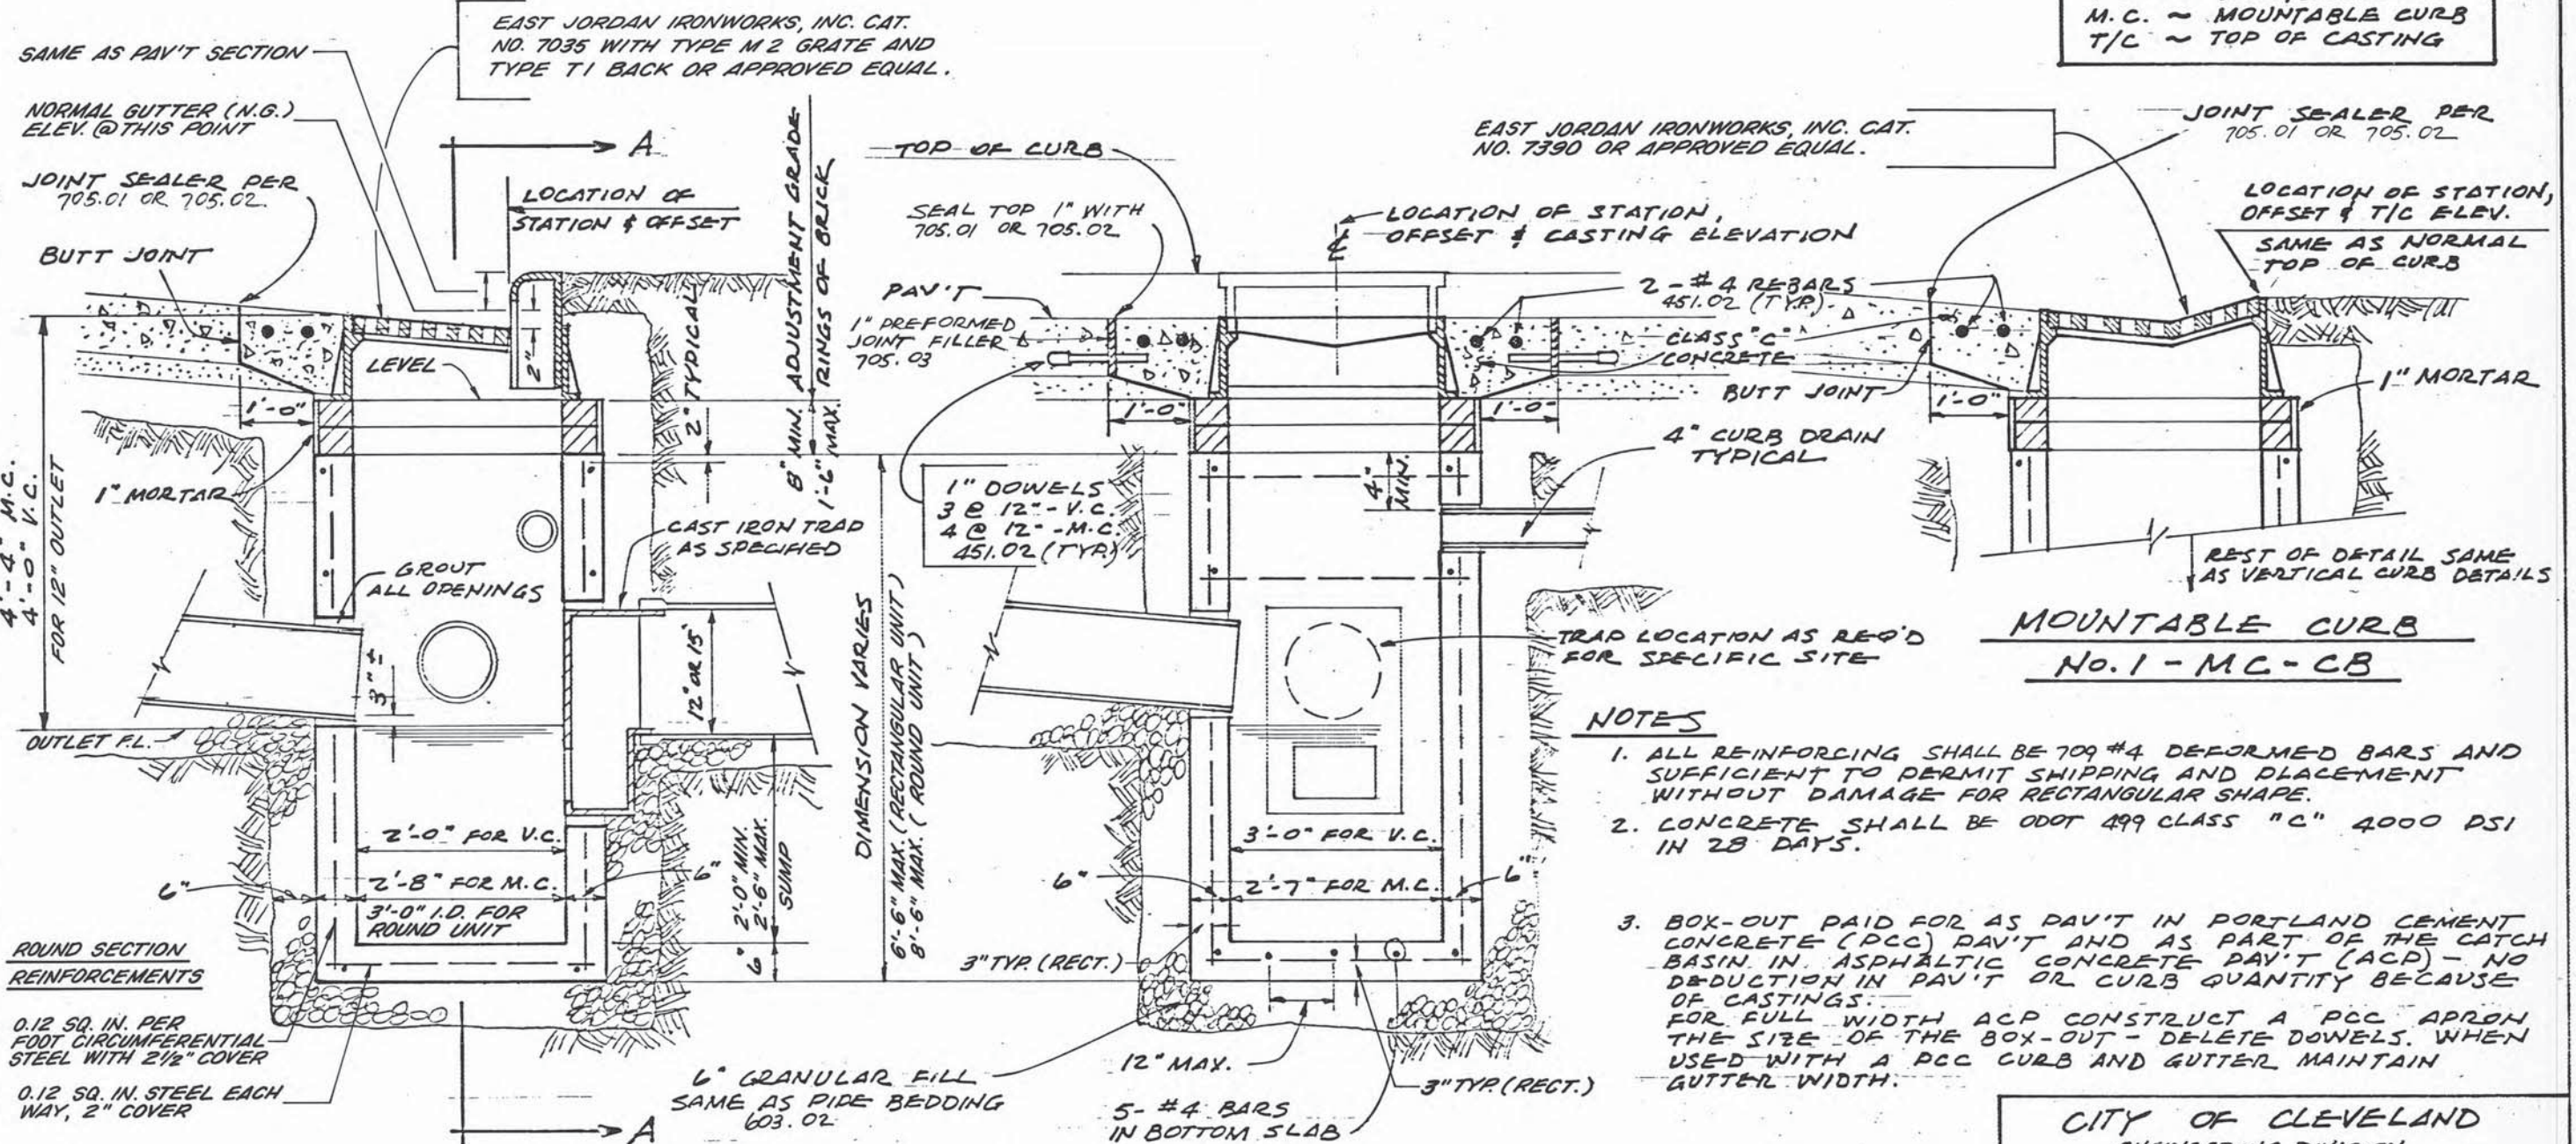 M.C. ~ MOUNTABLE CURB
T/C ~ TOP OF CASTING
EAST JORDAN IRONWORKS, INC. CAT.
NO. 7035 WITH TYPE M2 GRATE AND
TYPE T1 BACK OR APPROVED EQUAL.
SAME AS PAV'T SECTION
NORMAL GUTTER (N.G.)
ELEV. @ THIS POINT
JOINT SEALER PER
705.01 OR 705.02.
BUTT JOINT
A
LOCATION OF
STATION & OFFSET
8" MIN. ADJUSTMENT GRADE
1'-6" MAX. RINGS OF BRICK
2" TYPICAL
2"
LEVEL
1'-0"
1" MORTAR
4'-4" M.C.
4'-0" V.C.
FOR 12" OUTLET
CAST IRON TRAP
AS SPECIFIED
GROUT
ALL OPENINGS
3"±
12" OR 15"
OUTLET F.L.
2'-0" FOR V.C.
2'-8" FOR M.C.
3'-0" I.D. FOR
ROUND UNIT
6"
6"
2'-0" MIN.
2'-6" MAX.
SUMP
6"
DIMENSION VARIES
6'-6" MAX. (RECTANGULAR UNIT)
8'-6" MAX. (ROUND UNIT)
ROUND SECTION
REINFORCEMENTS
0.12 SQ. IN. PER
FOOT CIRCUMFERENTIAL
STEEL WITH 2 1/2" COVER
0.12 SQ. IN. STEEL EACH
WAY, 2" COVER
A
TOP OF CURB
SEAL TOP 1" WITH
705.01 OR 705.02
PAV'T
1" PREFORMED
JOINT FILLER
705.03
LOCATION OF STATION,
OFFSET & CASTING ELEVATION
2 - #4 REBARS
451.02 (TYP.)
CLASS "C"
CONCRETE
BUTT JOINT
1'-0"
1'-0"
1" DOWELS
3 @ 12" - V.C.
4 @ 12" - M.C.
451.02 (TYP.)
4" MIN.
4" CURB DRAIN
TYPICAL
TRAP LOCATION AS REQ'D
FOR SPECIFIC SITE
3'-0" FOR V.C.
2'-7" FOR M.C.
6"
6"
3" TYP. (RECT.)
6" GRANULAR FILL
SAME AS PIPE BEDDING
603.02
12" MAX.
5- #4 BARS
IN BOTTOM SLAB
3" TYP. (RECT.)
EAST JORDAN IRONWORKS, INC. CAT.
NO. 7390 OR APPROVED EQUAL.
JOINT SEALER PER
705.01 OR 705.02
LOCATION OF STATION,
OFFSET & T/C ELEV.
SAME AS NORMAL
TOP OF CURB
1'-0"
1" MORTAR
REST OF DETAIL SAME
AS VERTICAL CURB DETAILS
MOUNTABLE CURB
No. 1 - MC - CB
NOTES
1. ALL REINFORCING SHALL BE 709 #4 DEFORMED BARS AND
SUFFICIENT TO PERMIT SHIPPING AND PLACEMENT
WITHOUT DAMAGE FOR RECTANGULAR SHAPE.
2. CONCRETE SHALL BE ODOT 499 CLASS "C" 4000 PSI
IN 28 DAYS.
3. BOX-OUT PAID FOR AS PAV'T IN PORTLAND CEMENT
CONCRETE (PCC) PAV'T AND AS PART OF THE CATCH
BASIN IN ASPHALTIC CONCRETE PAV'T (ACP) - NO
DEDUCTION IN PAV'T OR CURB QUANTITY BECAUSE
OF CASTINGS.
FOR FULL WIDTH ACP CONSTRUCT A PCC APRON
THE SIZE OF THE BOX-OUT - DELETE DOWELS. WHEN
USED WITH A PCC CURB AND GUTTER MAINTAIN
GUTTER WIDTH.
CITY OF CLEVELAND